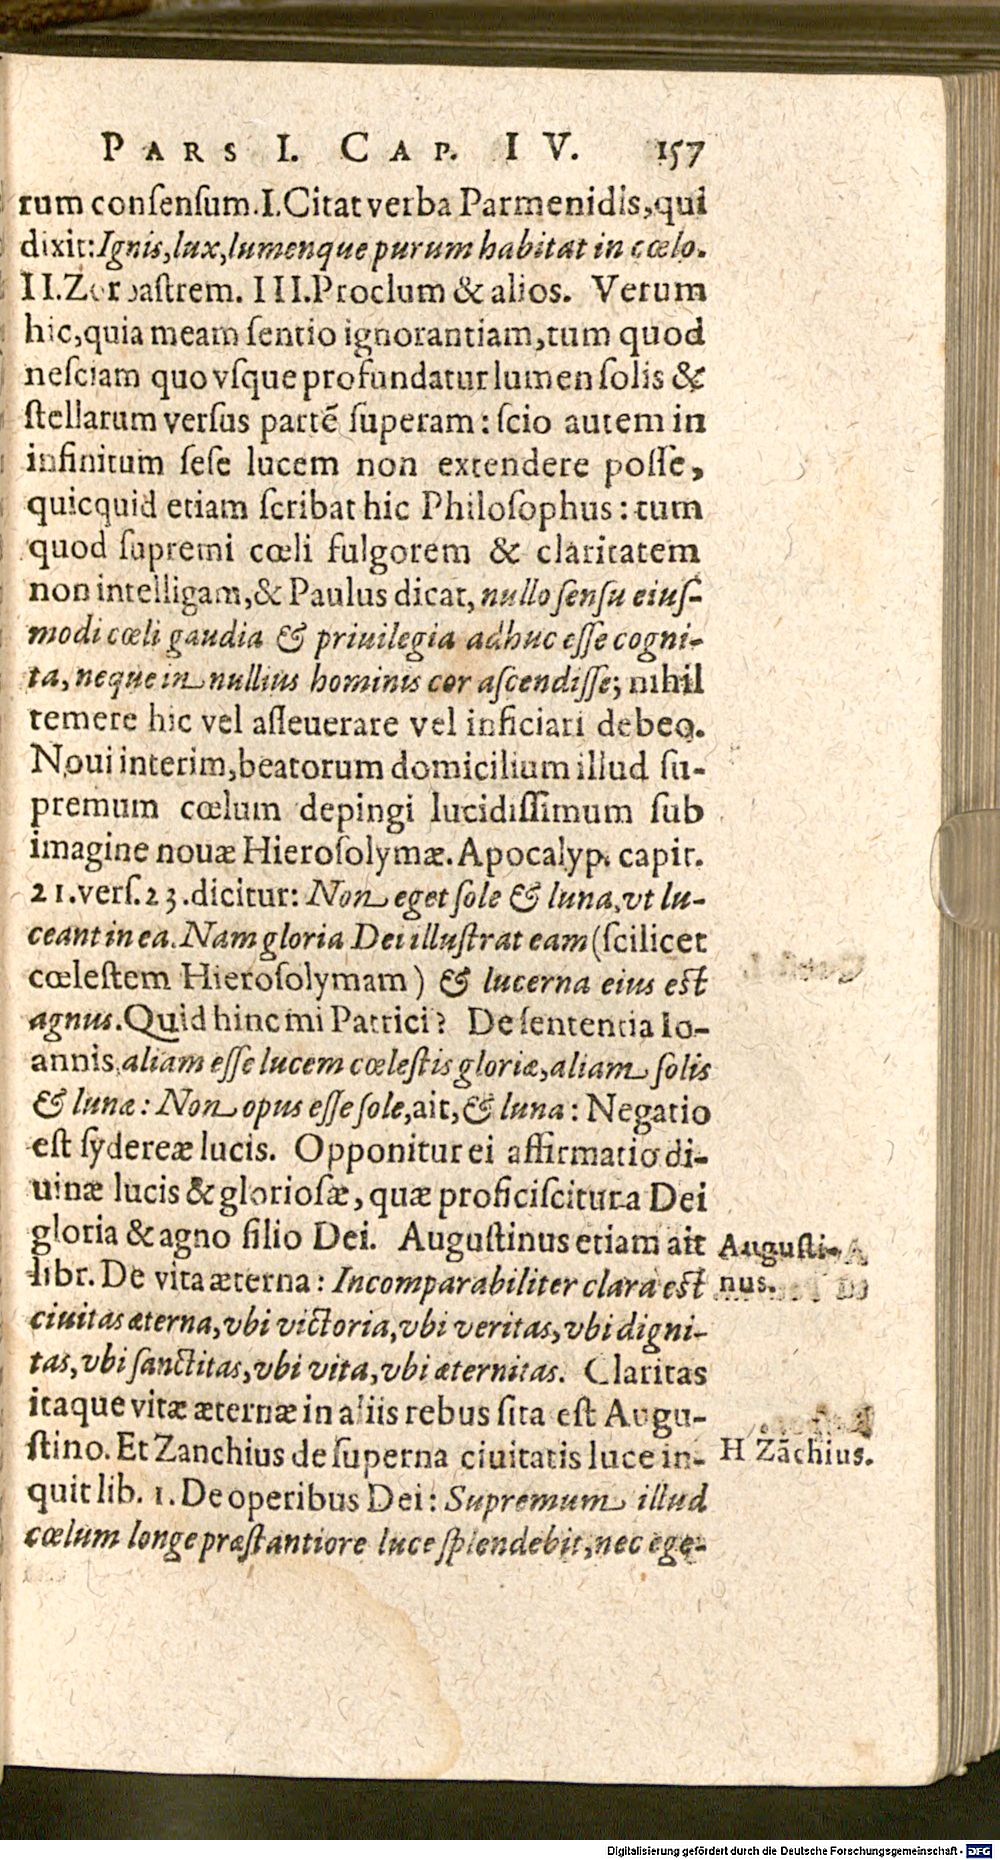 PARS I. CAP. IV. 157
rum conſenſum. I. Citat verba Parmenidis, qui
dixit: Ignis, lux, lumenque purum habitat in cœlo.
II. Zoroaſtrem. III. Proclum & alios. Verum
hic, quia meam ſentio ignorantiam, tum quod
neſciam quo vſque profundatur lumen ſolis &
ſtellarum verſus partẽ ſuperam: ſcio autem in
infinitum ſeſe lucem non extendere poſſe,
quicquid etiam ſcribat hic Philoſophus: tum
quod ſupremi cœli fulgorem & claritatem
non intelligam, & Paulus dicat, nullo ſenſu eiuſ-
modi cœli gaudia & priuilegia adhuc eſſe cogni-
ta, neque in nullius hominis cor aſcendiſſe; nihil
temere hic vel aſſeuerare vel inficiari debeo.
Noui interim, beatorum domicilium illud ſu-
premum cœlum depingi lucidiſſimum ſub
imagine nouæ Hieroſolymæ. Apocalyp. capit.
21. verſ. 23. dicitur: Non eget ſole & luna, vt lu-
ceant in ea. Nam gloria Dei illuſtrat eam (ſcilicet
cœleſtem Hieroſolymam) & lucerna eius est
agnus. Quid hinc mi Patrici? De ſententia Io-
annis aliam eſſe lucem cœleſtis gloriæ, aliam ſolis
& lunæ: Non opus eſſe ſole, ait, & luna: Negatio
eſt ſydereæ lucis. Opponitur ei affirmatio di-
uinæ lucis & glorioſæ, quæ proficiſcitur a Dei
gloria & agno filio Dei. Auguſtinus etiam ait
libr. De vita æterna: Incomparabiliter clara est
ciuitas æterna, vbi victoria, vbi veritas, vbi digni-
tas, vbi ſanctitas, vbi vita, vbi æternitas. Claritas
itaque vitæ æternæ in aliis rebus ſita eſt Augu-
ſtino. Et Zanchius de ſuperna ciuitatis luce in-
quit lib. 1. De operibus Dei: Supremum illud
cœlum longe præſtantiore luce ſplendebit, nec ege-
Auguſti-
nus.
H Zãchius.
Digitalisierung gefördert durch die Deutsche Forschungsgemeinschaft - DFG